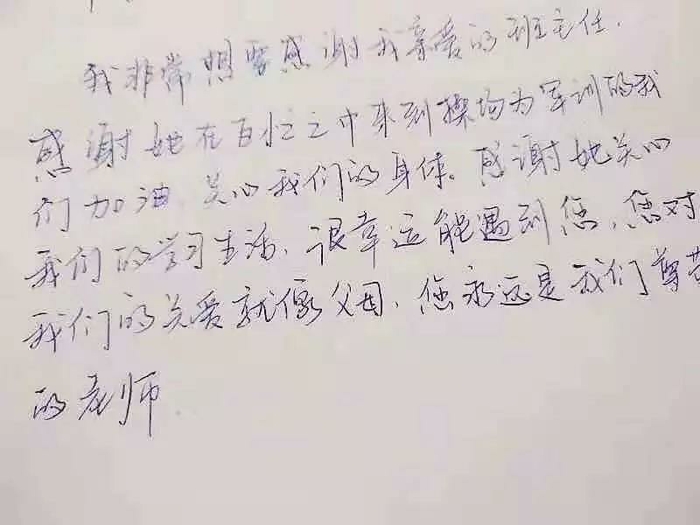 我非常想要感谢我亲爱的班主任.
感谢她在百忙之中来到操场为军训的我
们加油,关心我们的身体。感谢她关心
我们的学习生活、很幸运能遇到您,您对
我们的关爱就像父母、您永远是我们尊敬
的老师